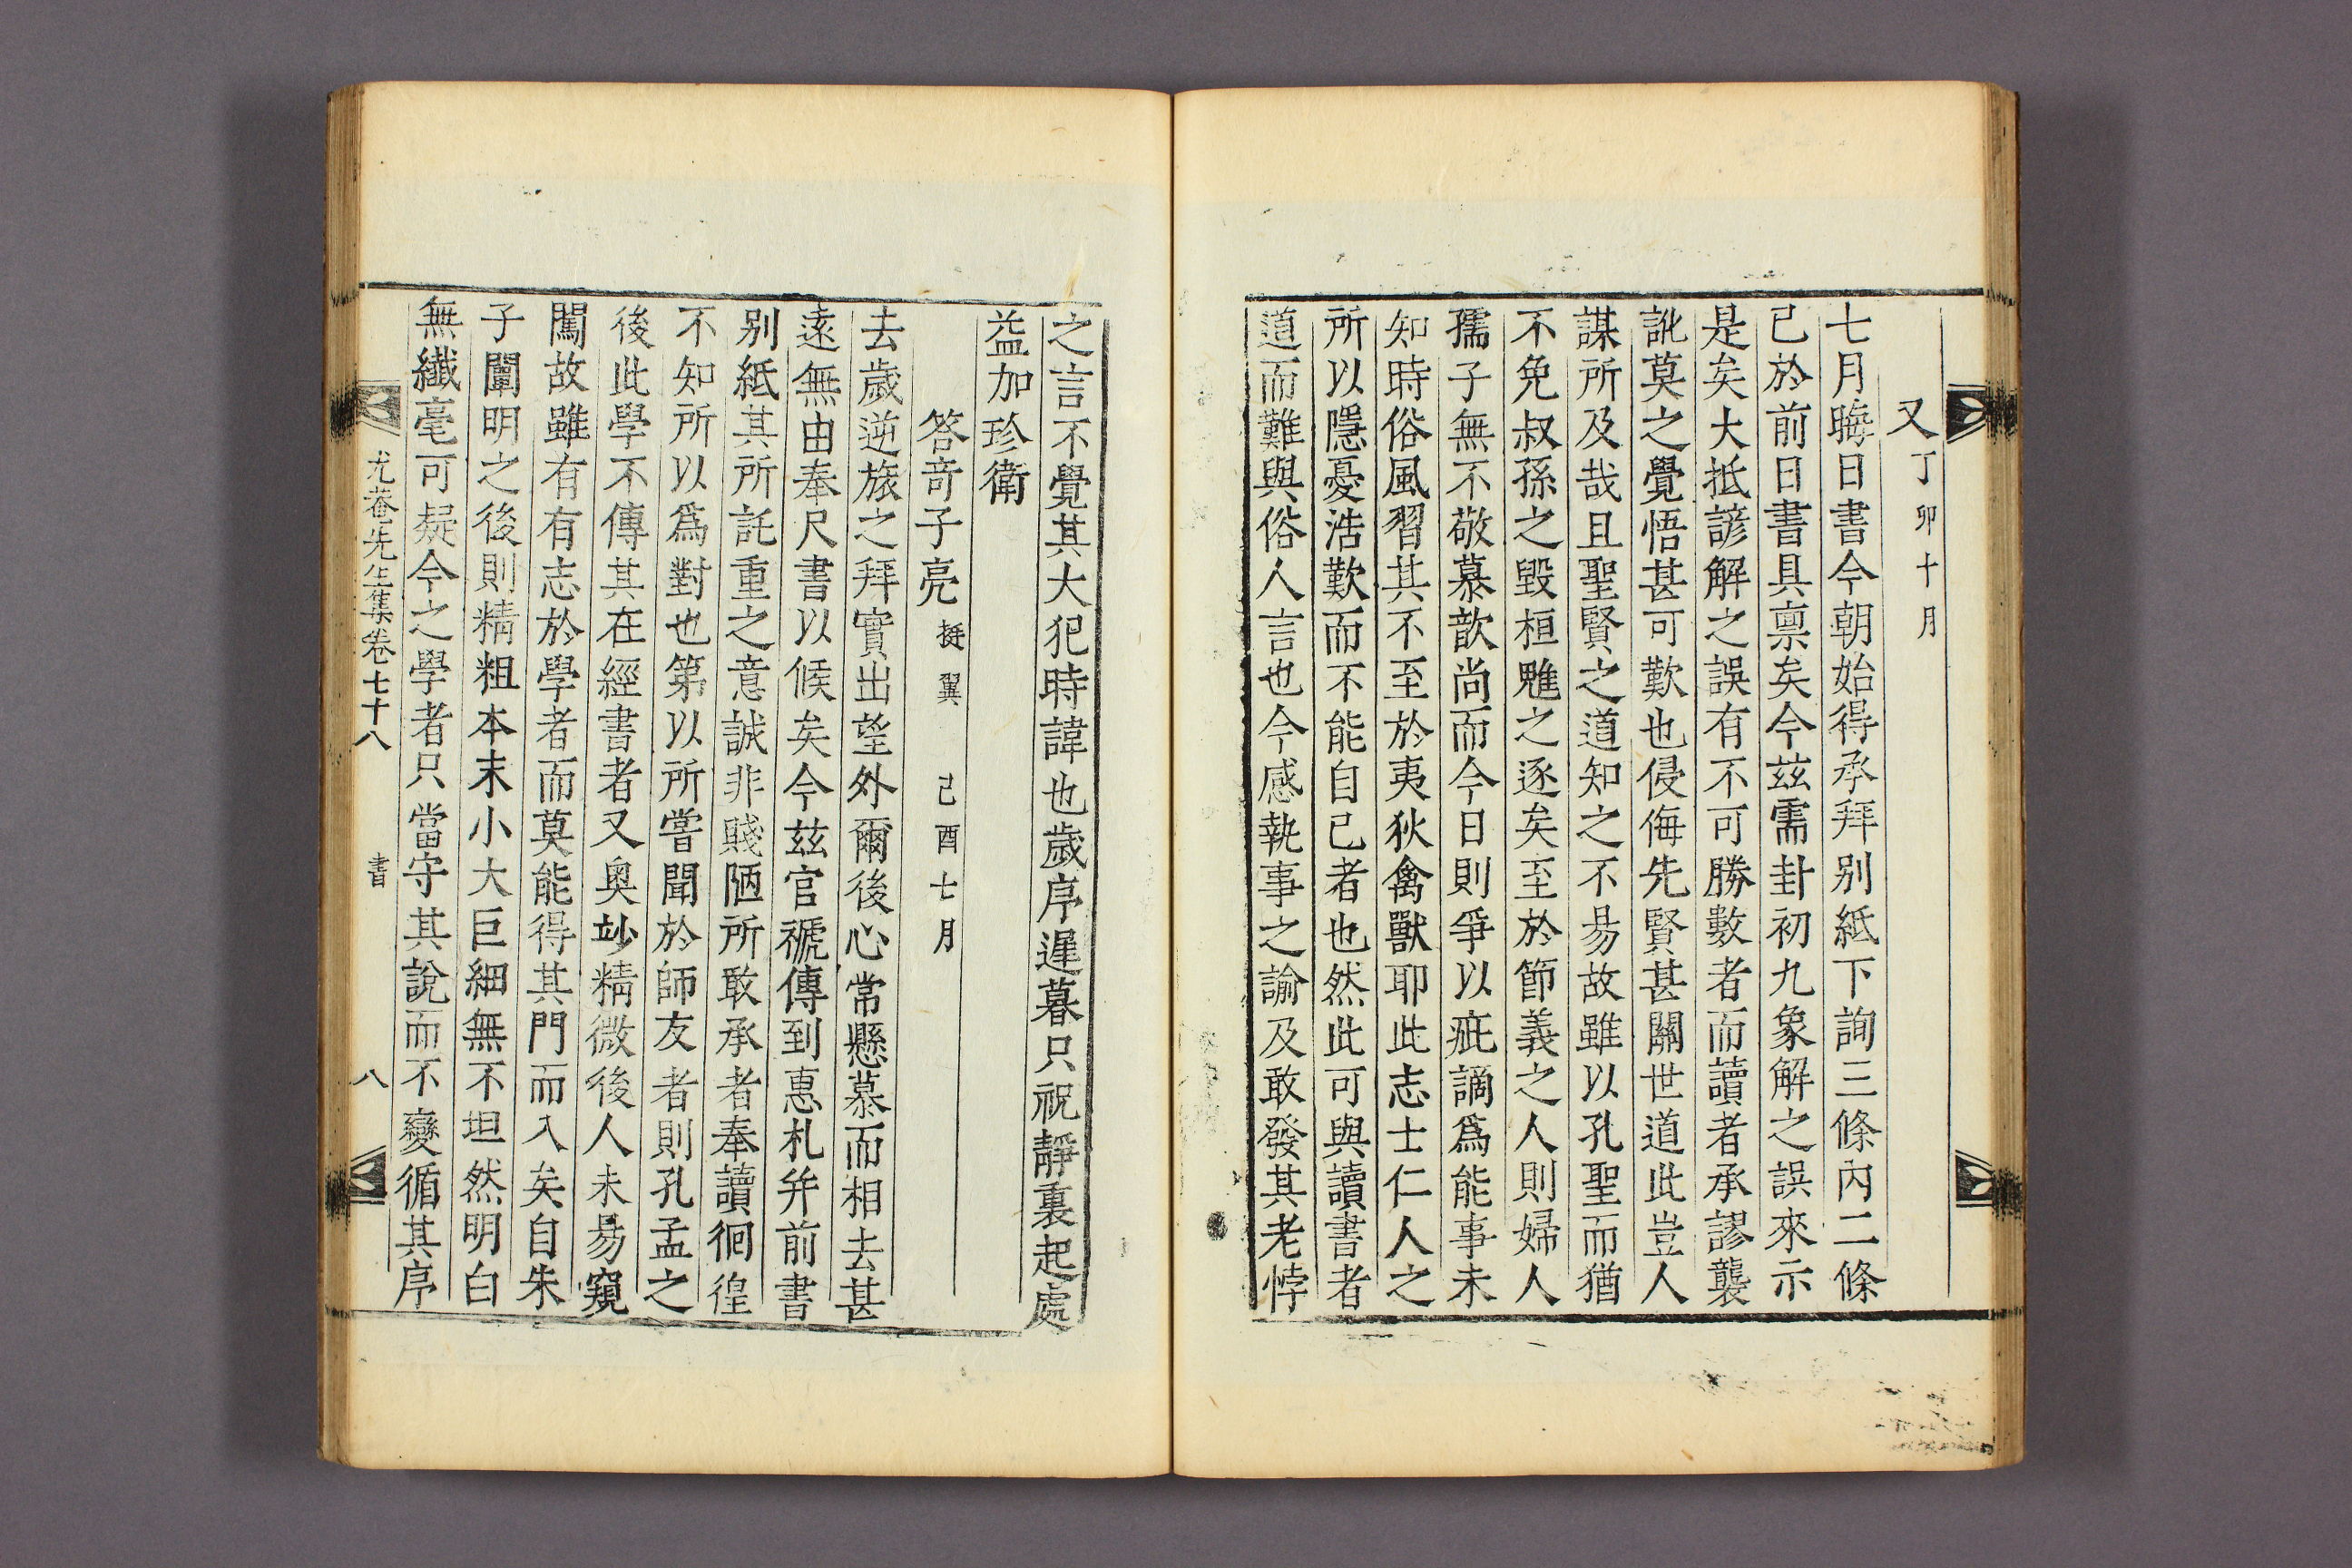 又丁卯十月
七月晦日書今朝始得承拜别紙下詢三條內二條
已於前日書具禀矣今玆需卦初九象解之誤來示
是矣大抵諺解之誤有不可勝數者而讀者承謬襲
訛莫之覺悟甚可歎也侵侮先賢甚關世道此豈人
謀所及哉且聖賢之道知之不易故雖以孔聖而猶
不免叔孫之毀桓魋之逐矣至於節義之人則婦人
孺子無不敬慕歆尙而今日則爭以疵謫爲能事未
知時俗風習其不至於夷狄禽獸耶此志士仁人之
所以隱憂浩歎而不能自已者也然此可與讀書者
道而難與俗人言也今感執事之諭及敢發其老悖
之言不覺其大犯時諱也歲序遲暮只祝靜裏起處
益加珍衛
答奇子亮挺翼 己酉七月
去歲逆旅之拜實出望外爾後心常懸慕而相去甚
遠無由奉尺書以候矣今玆官褫傳到惠札幷前書
别紙其所託重之意誠非賤陋所敢承者奉讀徊徨
不知所以爲對也第以所嘗聞於師友者則孔孟之
後此學不傳其在經書者又奧妙精微後人未易窺
闖故雖有有志於學者而莫能得其門而入矣自朱
子闡明之後則精粗本末小大巨細無不坦然明白
無纖毫可疑今之學者只當守其說而不變循其序
尤菴先生集卷七十八 書 八